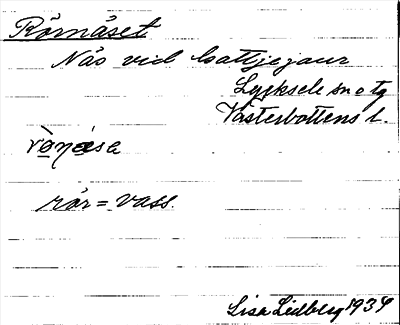 Rörnäset
Näs vid Lattjejaur
Lycksele sn o tg
Västerbottens l.
rö̀ŋæ̀sə
rör = vass.
Lisa Lidberg 1934